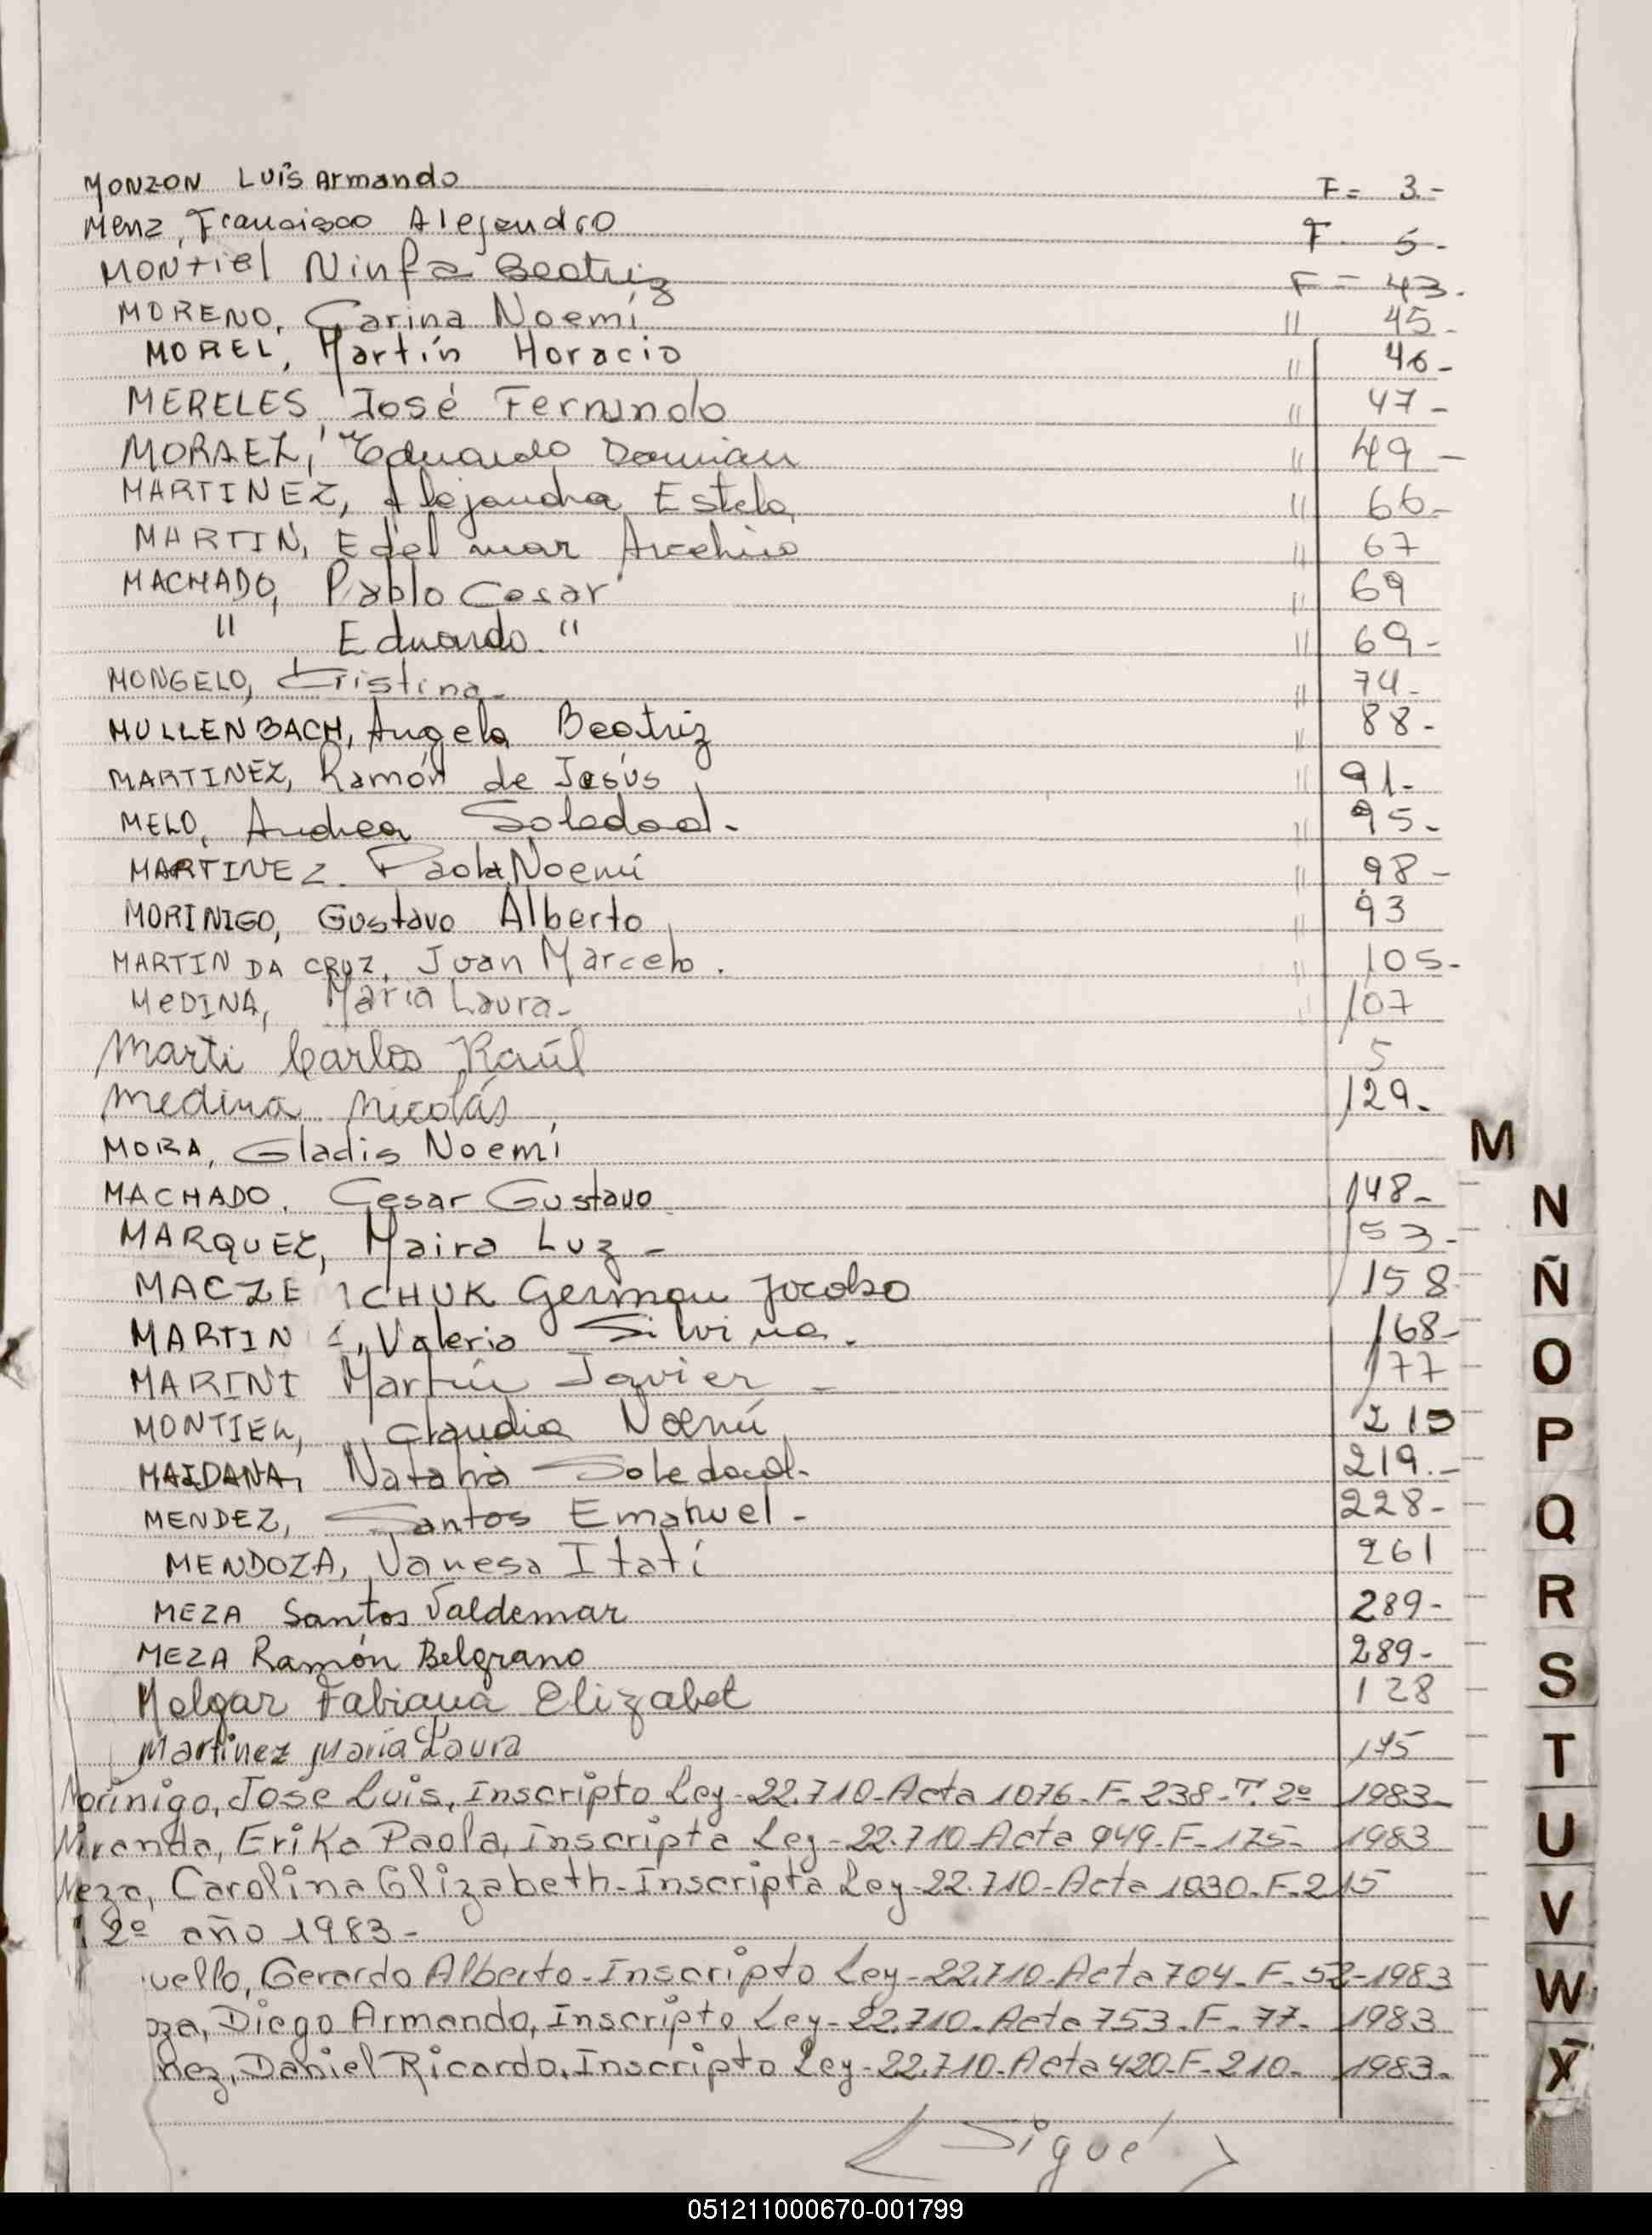 MONZON Luis Armando F= 3.-
Menz, Francisco Alejandro F. 5-
MONtiel Ninfa Beatriz F= 43.
MORENO, Carina Noemí " 45-
MOREL, Martín Horacio " 46-
MERELES, José Fernando " 47-
MORAEZ, Eduardo Damian " 49-
MARTINEZ, Alejandra Estela " 66-
MARTIN, Edel mar " 67
MACHADO, Pablo Cesar " 69
" Eduardo " " 69-
MONGELO, Cristina- " 74-
MULLENBACH, Angela Beatriz " 88-
MARTINEZ, Ramón de Jesús " 91-
MELO, Andrea Soledad- " 95-
MARTINEZ. Paola Noemí " 98-
MORINIGO, Gustavo Alberto " 93
MARTIN DA CRUZ, Juan Marcelo. " 105-
MEDINA, Maria Laura- " 107
Marti Carlos Raúl 5
Medina Nicolás 129.
MORA, Gladis Noemí
MACHADO. Cesar Gustavo 148-
MARQUEZ, Maira Luz- 153-
MACZE ICHUK German Jocobo 158
MARTIN , Valeria Silvina. 168-
MARINI Martín Javier - 177
MONTIEL, Claudia Noemí 210
MAIDANA, Natalia Soledad- 219.-
MENDEZ, Santos Emanuel- 228-
MENDOZA, Vanesa Itatí 261
MEZA Santos Valdemar 289-
MEZA Ramón Belgrano 289-
Melgar Fabiana Elizabet 128
Martinez Maria Laura 175
Morinigo, Jose Luis, Inscripto Ley-22.710-Acta 1076-F-238-T. 2º 1983-
Miranda, Erika Paola, Inscripta Ley-22.710-Acta 949-F-175- 1983
Meza, Carolina Elizabeth-Inscripta Ley-22.710-Acta 1030-F-215
2º año 1983-
uello, Gerardo Alberto-Inscripto Ley-22.710-Acta 704-F-52-1983
oza, Diego Armando, Inscripto Ley-22.710-Acta 753-F-77- 1983
nez, Daniel Ricardo, Inscripto Ley-22.710-Acta 420-F-210- 1983-
(Sigue)
M
N
Ñ
O
P
Q
R
S
T
U
V
W
X
Y
051211000670-001799